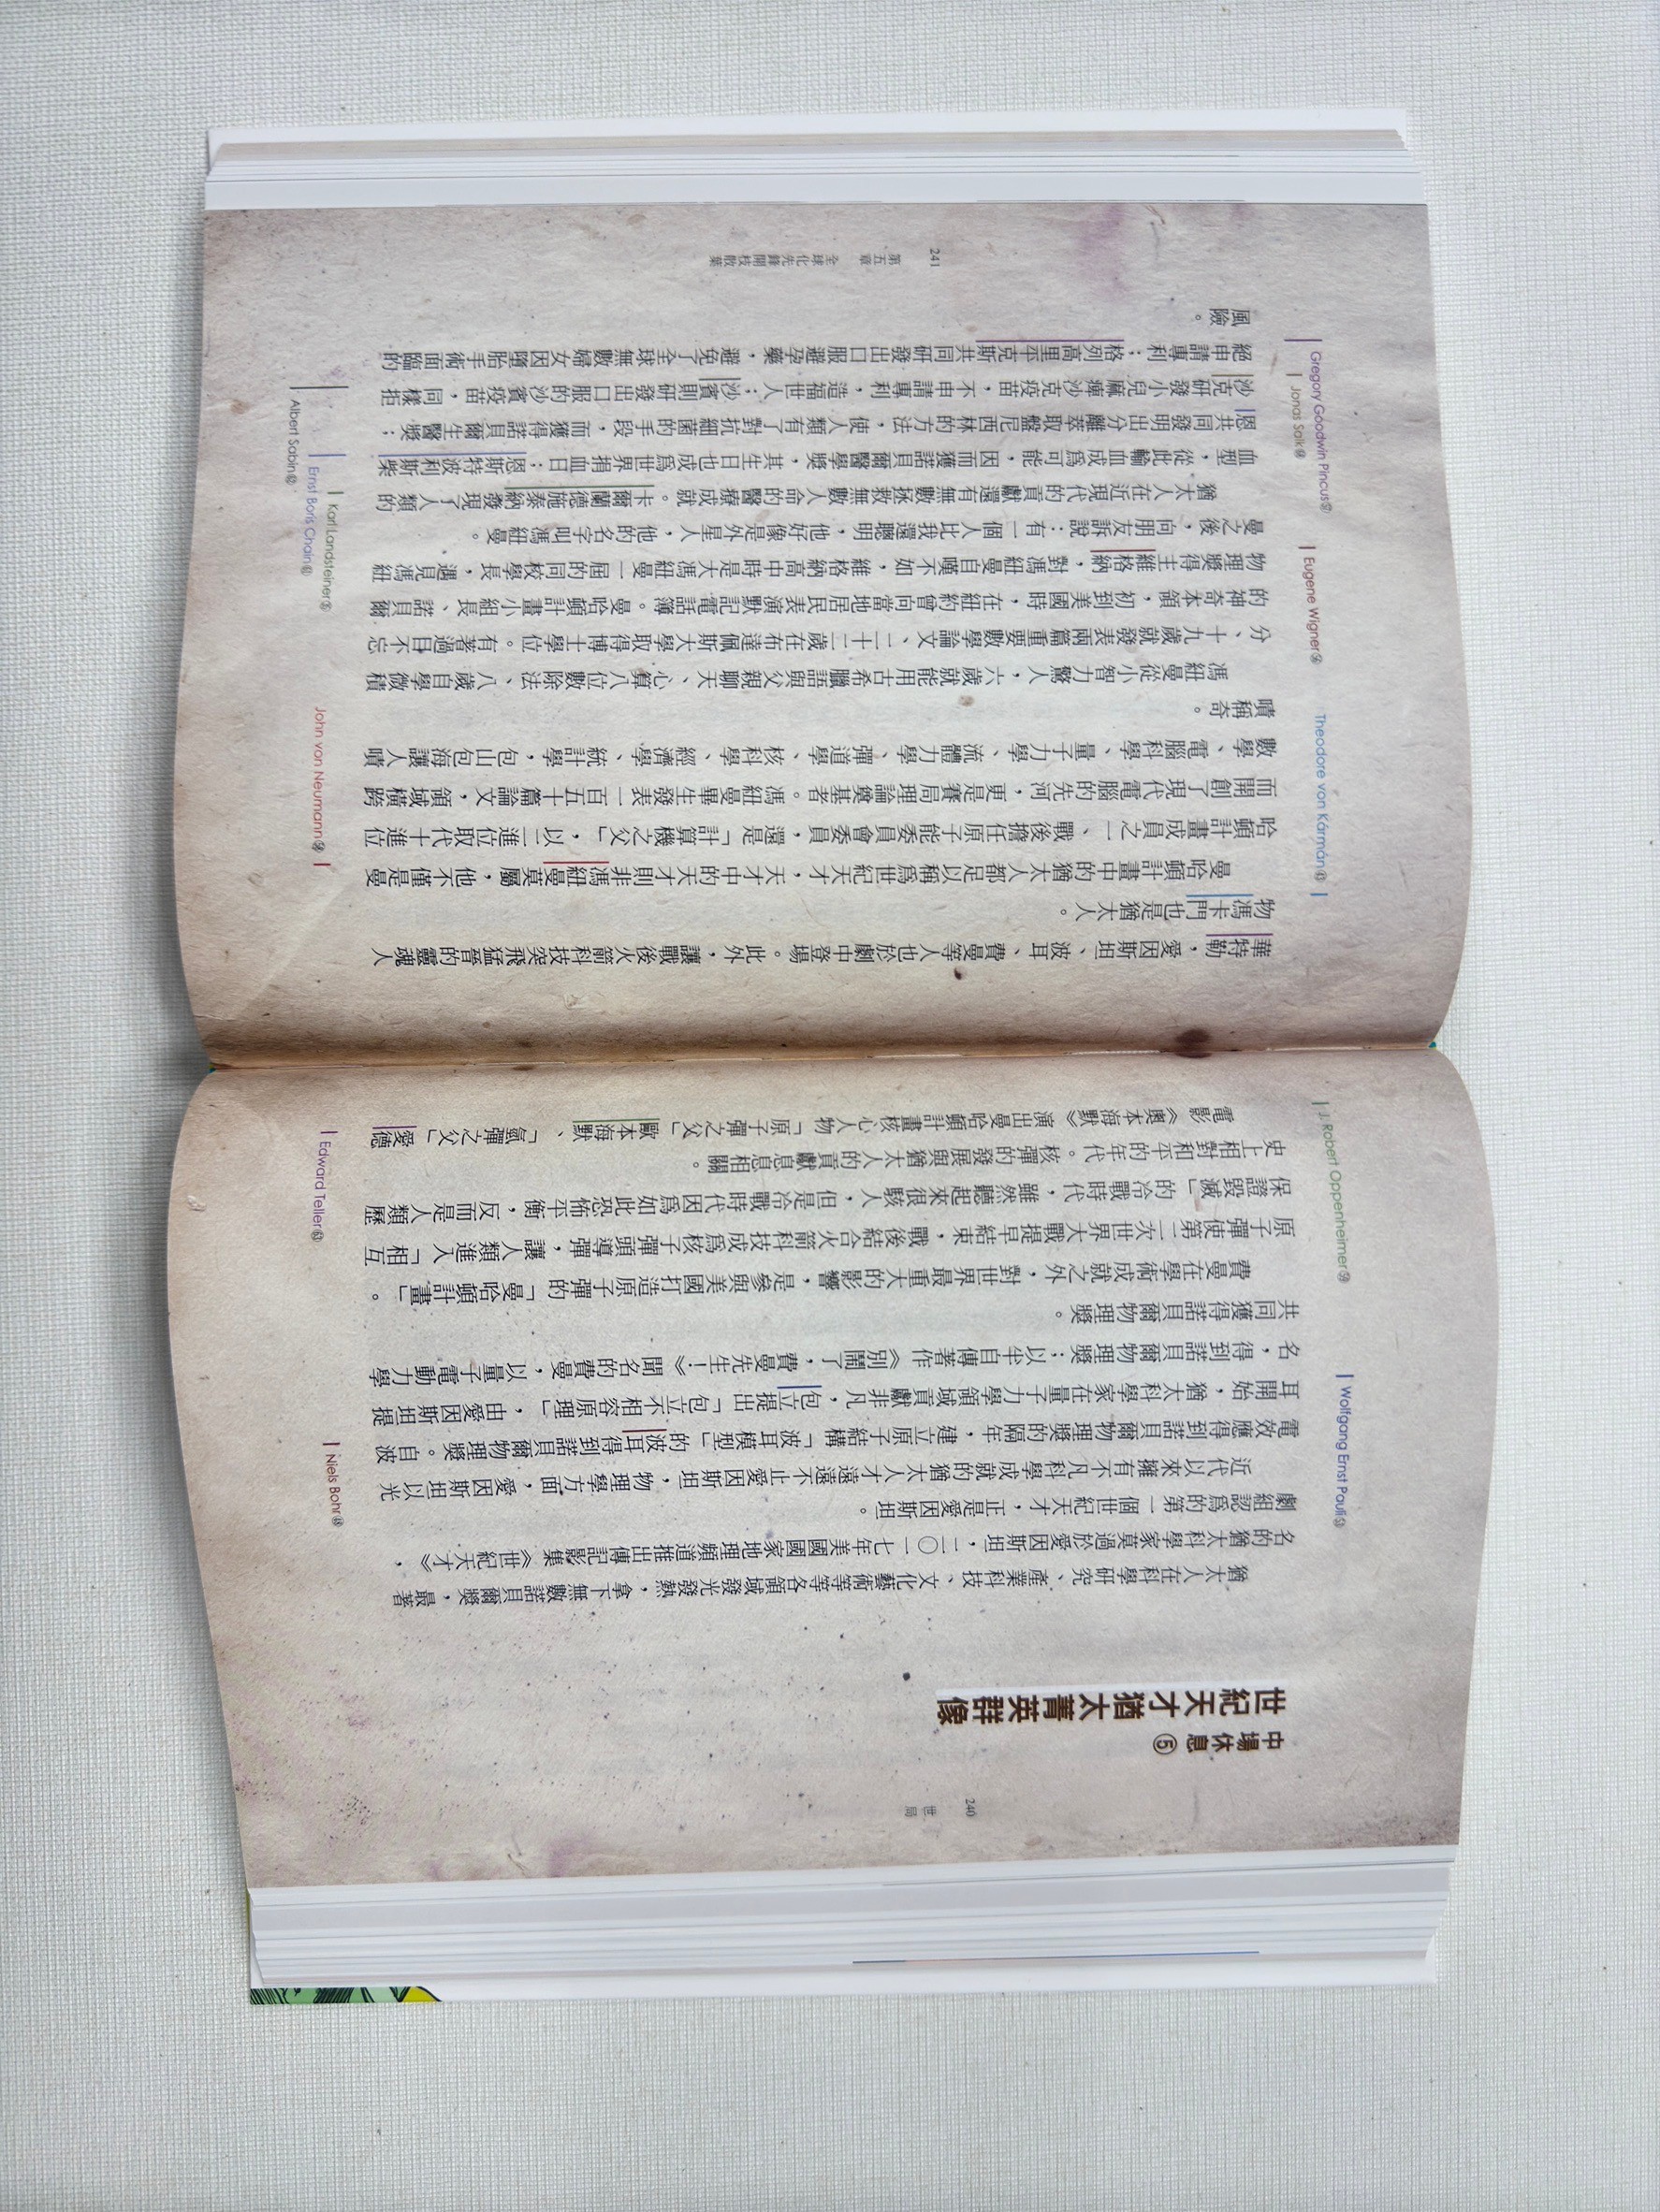 240
世局
中場休息⑤
世紀天才猶太菁英群像
猶太人在科學研究、產業科技、文化藝術等等各領域發光發熱，拿下無數諾貝爾獎，最著
名的猶太科學家莫過於愛因斯坦，二〇一七年美國國家地理頻道推出傳記影集《世紀天才》，
劇組認為的第一個世紀天才，正是愛因斯坦。
近代以來擁有不凡科學成就的猶太人才遠遠不止愛因斯坦，物理學方面，愛因斯坦以光
電效應得到諾貝爾物理獎的隔年，建立原子結構「波耳模型」的波耳得到諾貝爾物理獎。自波
耳開始，猶太科學家在量子力學領域貢獻非凡，包立提出「包立不相容原理」，由愛因斯坦提
名，得到諾貝爾物理獎；以半自傳著作《別鬧了，費曼先生！》聞名的費曼，以量子電動力學
共同獲得諾貝爾物理獎。
費曼在學術成就之外，對世界最重大的影響，是參與美國打造原子彈的「曼哈頓計畫」。
原子彈使第二次世界大戰提早結束，戰後結合火箭科技成為核子彈頭導彈，讓人類進入「相互
保證毀滅」的冷戰時代，雖然聽起來很駭人，但是冷戰時代因為如此恐怖平衡，反而是人類歷
史上相對和平的年代。核彈的發展與猶太人的貢獻息息相關。
電影《奧本海默》演出曼哈頓計畫核心人物「原子彈之父」歐本海默、「氫彈之父」愛德
Wolfgang Ernst Pauli㊿
J. Robert Oppenheimer㊴
Niels Bohr㊾
Edward Teller㊾
華特勒，愛因斯坦、波耳、費曼等人也於劇中登場。此外，讓戰後火箭科技突飛猛晉的靈魂人
物馮卡門也是猶太人。
曼哈頓計畫中的猶太人都足以稱為世紀天才，天才中的天才則非馮紐曼莫屬，他不僅是曼
哈頓計畫成員之一、戰後擔任原子能委員會委員，還是「計算機之父」，以二進位取代十進位
而開創了現代電腦的先河，更是賽局理論奠基者。馮紐曼畢生發表一百五十篇論文，領域橫跨
數學、電腦科學、量子力學、流體力學、彈道學、核科學、經濟學、統計學，包山包海讓人嘖
嘖稱奇。
馮紐曼從小智力驚人，六歲就能用古希臘語與父親聊天、心算八位數除法、八歲自學微積
分、十九歲就發表兩篇重要數學論文、二十二歲在布達佩斯大學取得博士學位。有著過目不忘
的神奇本領，初到美國時，在紐約曾向當地居民表演默記電話簿。曼哈頓計畫小組長、諾貝爾
物理獎得主維格納，對馮紐曼自嘆不如，維格納高中時是大馮紐曼一屆的同校學長，遇見馮紐
曼之後，向朋友訴說：有一個人比我還聰明，他好像是外星人，他的名字叫馮紐曼。
猶太人在近現代的貢獻還有無數拯救無數人命的醫療成就。卡爾蘭德施泰納發現了人類的
血型，從此輸血成為可能，因而獲諾貝爾醫學獎，其生日也成為世界捐血日；恩斯特波利斯柴
恩共同發明出分離萃取盤尼西林的方法，使人類有了對抗細菌的手段，而獲得諾貝爾生醫獎；
沙克研發小兒麻痺沙克疫苗，不申請專利，造福世人；沙賓則研發出口服的沙賓疫苗，同樣拒
絕申請專利；格列高里平克斯共同研發出口服避孕藥，避免了全球無數婦女因墮胎手術面臨的
風險。
Theodore von Kármán
Eugene Wigner
Jonas Salk
Gregory Goodwin Pincus
John von Neumann
Karl Landsteiner
Ernst Boris Chain
Albert Sabin
241
第五章　全球化先鋒開枝散葉